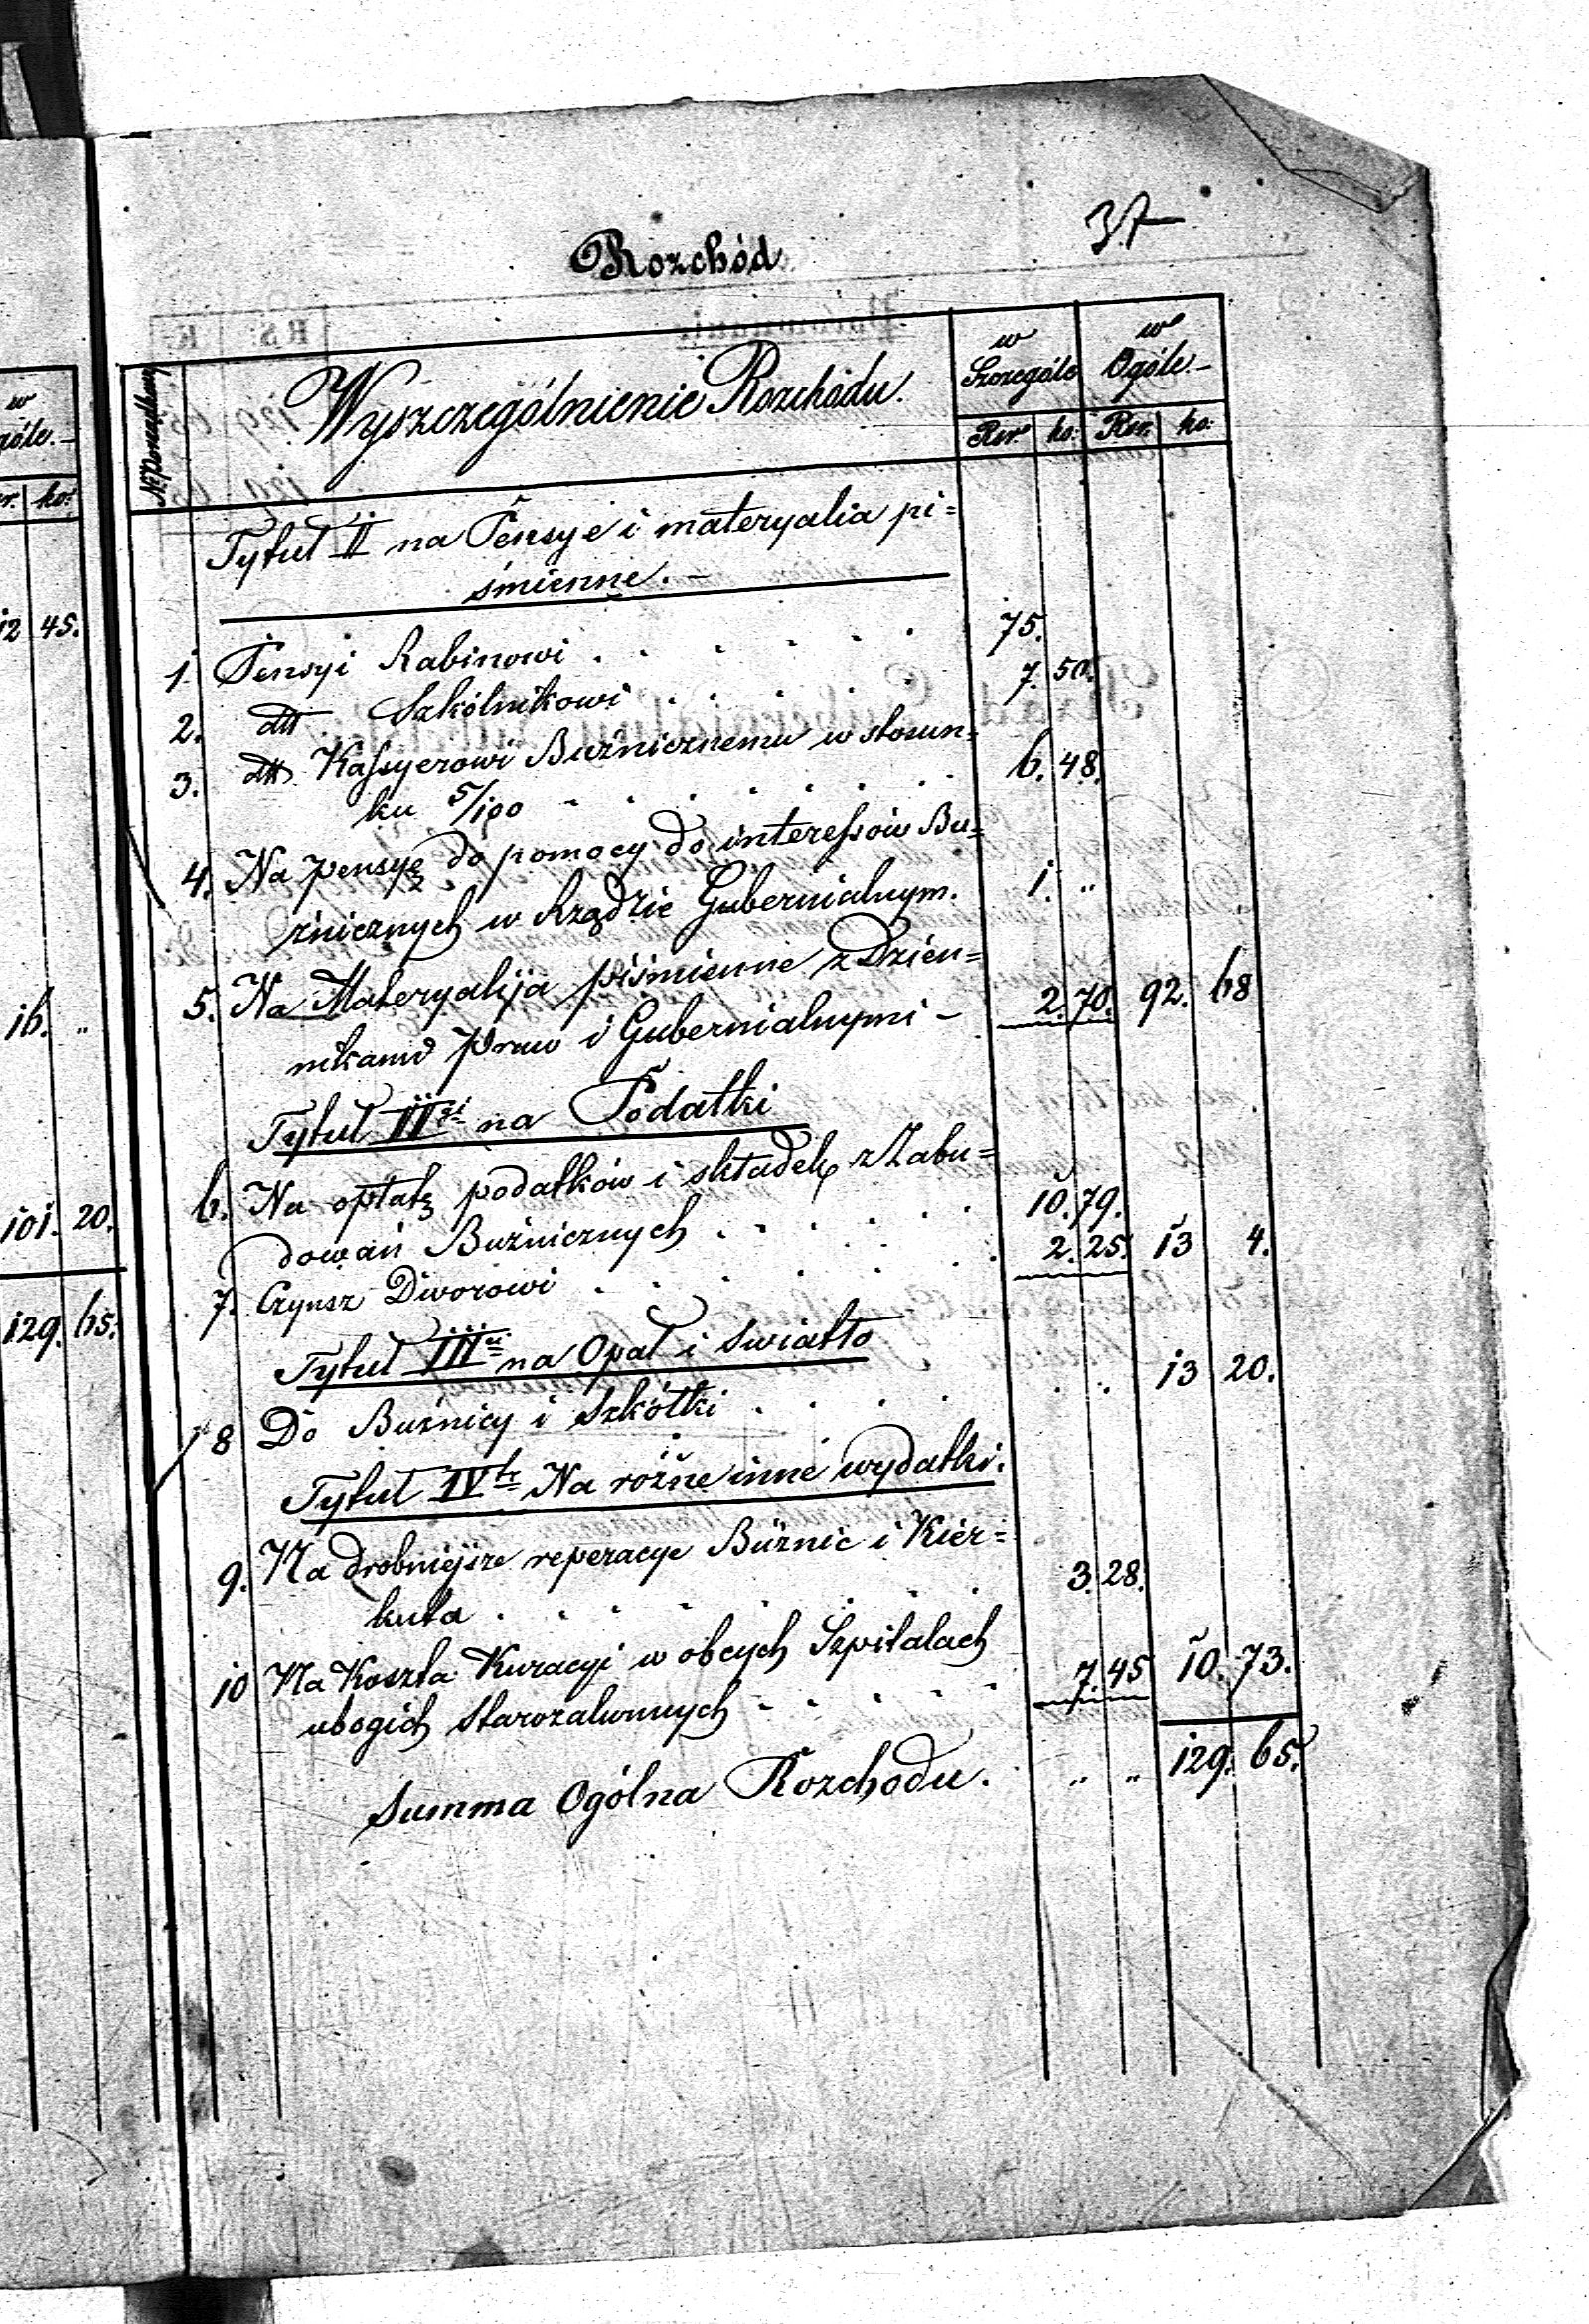 37
Rozchód
w
góle.
r. ko:
12 45.
16. "
101. 20.
129. 65.
Nr Porządkowy
Wyszczególnienie Rozchodu.
w Szczególe
w Ogóle
Rsr. ko: Rsr. ko:
Tytuł II na Pensye i materyalia pi=
śmienne. -
1. Pensyi Rabinowi . . . . . . 75.
2. dtt Szkólnikowi . . . . . 7. 50.
3. dtt Kassyerowi Bużnicznemu w stosun=
ku 5/100 - . . . . . . 6. 48.
4. Na pensyę do pomocy do interessów Bu=
żnicznych w Rządzie Gubernialnym. 1. "
5. Na Materyalija piśmienne z Dzien=
nikami Praw i Gubernialnymi - 2. 70. 92. 68
Tytuł II na Podatki
6. Na opłatę podatków i składek z Zabu=
dowań Bużnicznych . . . . . 10. 79.
7. Czynsz Dworowi . . . . . . . 2. 25. 13 4.
Tytuł III na Opał i Swiatło
8 Do Bużnicy i Szkółki . . . . . . 13 20.
Tytuł IV Na różne inne wydatki.
9. Na drobniejsze reperacye Bużnic i Kier=
kuta . . . . . . . . 3. 28.
10 Na Koszta Kuracyi w obcych Szpitalach
ubogich starozakonnych - . . . . 7. 45 10. 73.
Summa Ogólna Rozchodu. " " 129. 65.